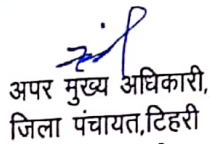 अपर मुख्य अधिकारी,
जिला पंचायत,टिहरी